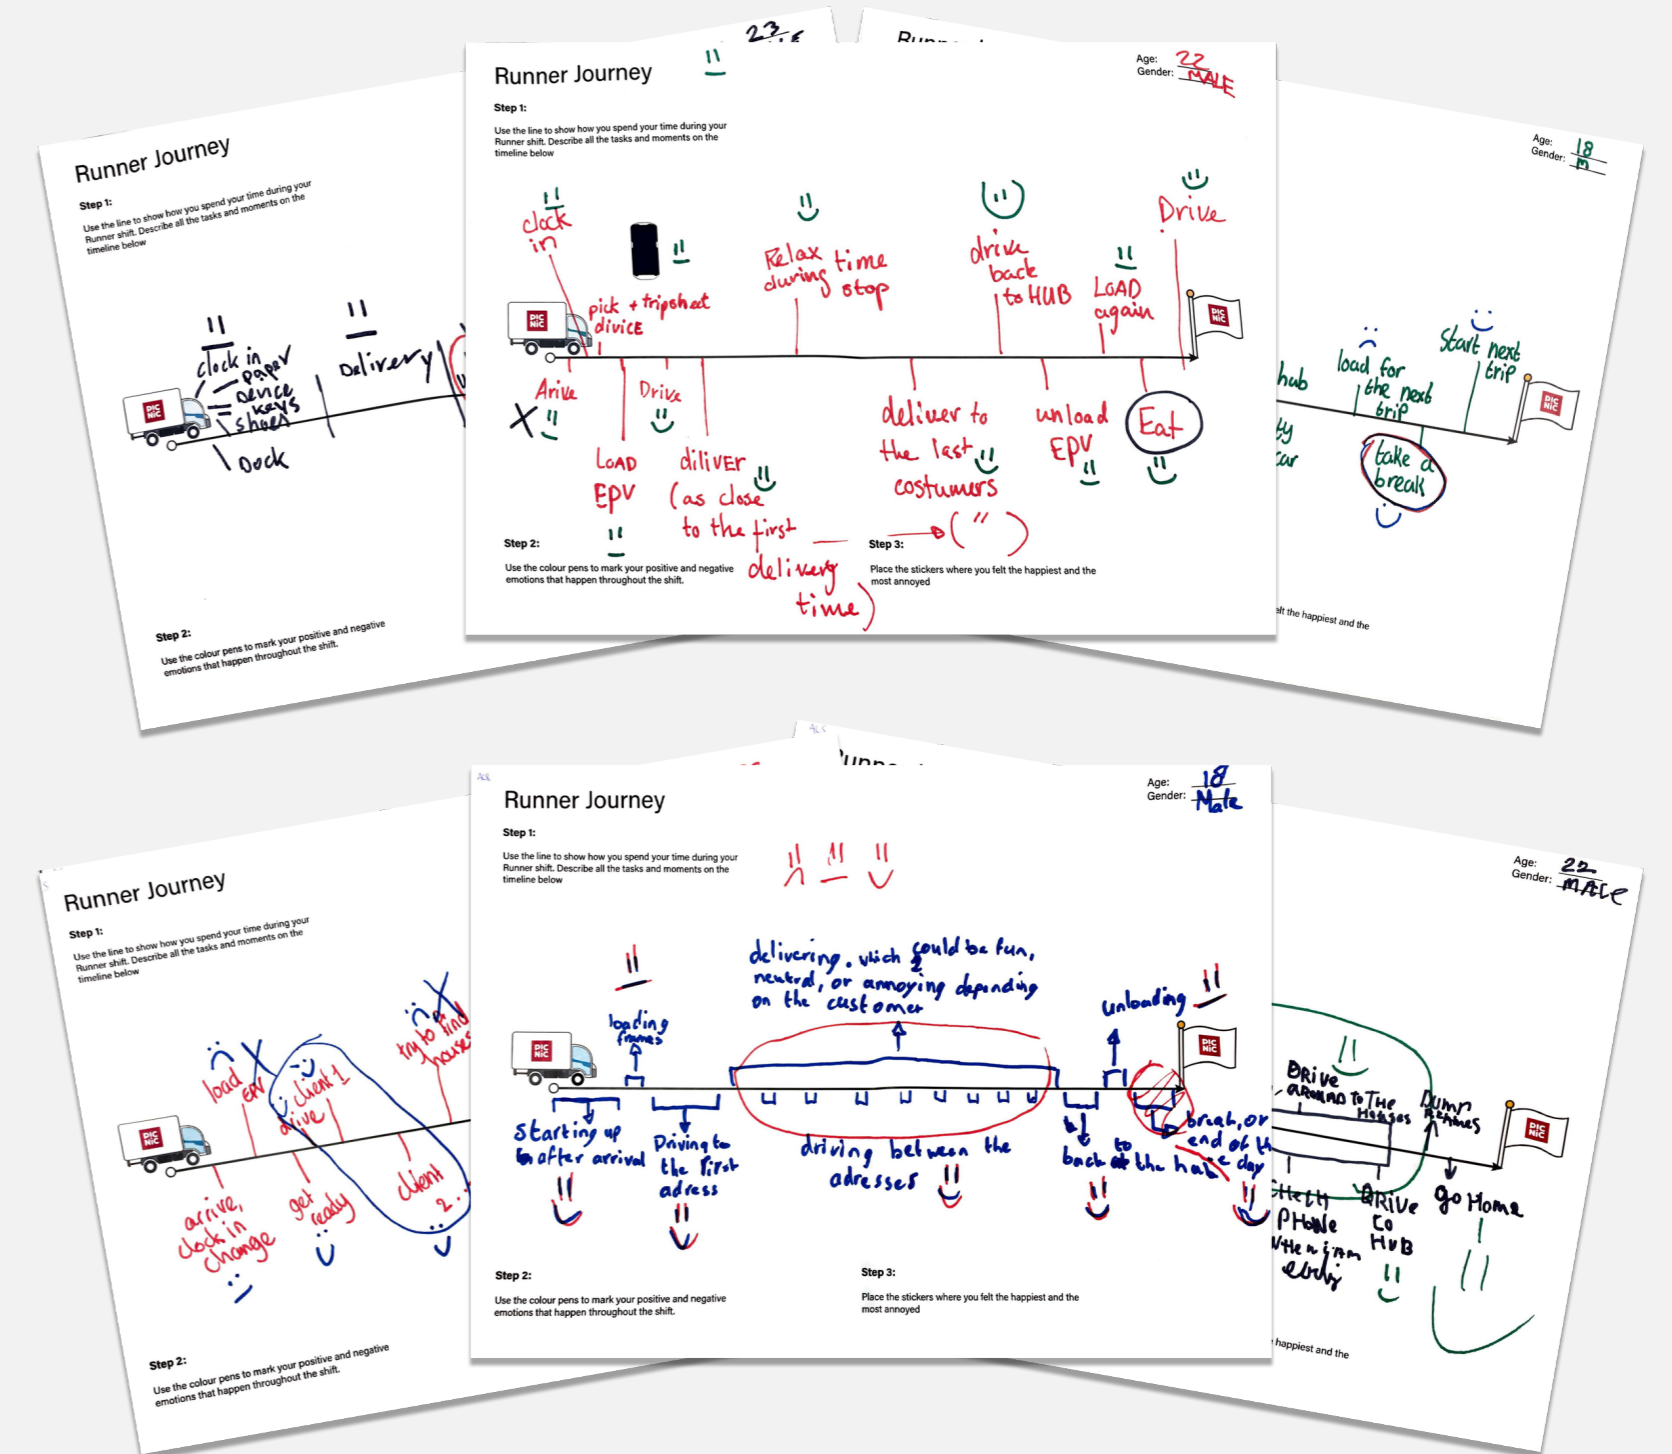 23
Runner Journey
Step 1:
Use the line to show how you spend your time during your
Runner shift. Describe all the tasks and moments on the
timeline below
clock in
paper
Device
keys
shoes
Dock
Delivery
PIC
NiC
Step 2:
Use the colour pens to mark your positive and negative
emotions that happen throughout the shift.
Runner Journey
Age: 22
Gender: MALE
Step 1:
Use the line to show how you spend your time during your
Runner shift. Describe all the tasks and moments on the
timeline below
clock
in
pick + tripsheet
divicE
Relax time
during stop
drive
back
to HUB
LOAD
again
Drive
PIC
NiC
PIC
NiC
Arive
X
LOAD
EPV
Drive
dilivEr
(as close
to the first
delivery
time)
deliver to
the last
costumers
( " )
unload
EPV
Eat
Step 2:
Use the colour pens to mark your positive and negative
emotions that happen throughout the shift.
Step 3:
Place the stickers where you felt the happiest and the
most annoyed
Age: 18
Gender: M
hub
load for
the next
trip
Start next
trip
PIC
NiC
ty
car
take a
break
elt the happiest and the
Runner Journey
Step 1:
Use the line to show how you spend your time during your
Runner shift. Describe all the tasks and moments on the
timeline below
load
EPV
drive
client 1
try to find
houses
PIC
NiC
arrive,
clock in
change
get
ready
client
2...
Step 2:
Use the colour pens to mark your positive and negative
emotions that happen throughout the shift.
Runner Journey
Age: 18
Gender: Male
Step 1:
Use the line to show how you spend your time during your
Runner shift. Describe all the tasks and moments on the
timeline below
loading
frames
delivering. which could be fun,
neutral, or annoying depending
on the customer
unloading
PIC
NiC
PIC
NiC
Starting up
after arrival
Driving to
the first
adress
driving between the
adresses
back to the hub
break, or
end of the
day
Step 2:
Use the colour pens to mark your positive and negative
emotions that happen throughout the shift.
Step 3:
Place the stickers where you felt the happiest and the
most annoyed
Age: 22
Gender: MALE
DRive
AROUND TO THE
Houses
Dump
FRAMES
PIC
NiC
PHONE
DRive
to
HUB
go Home
happiest and the